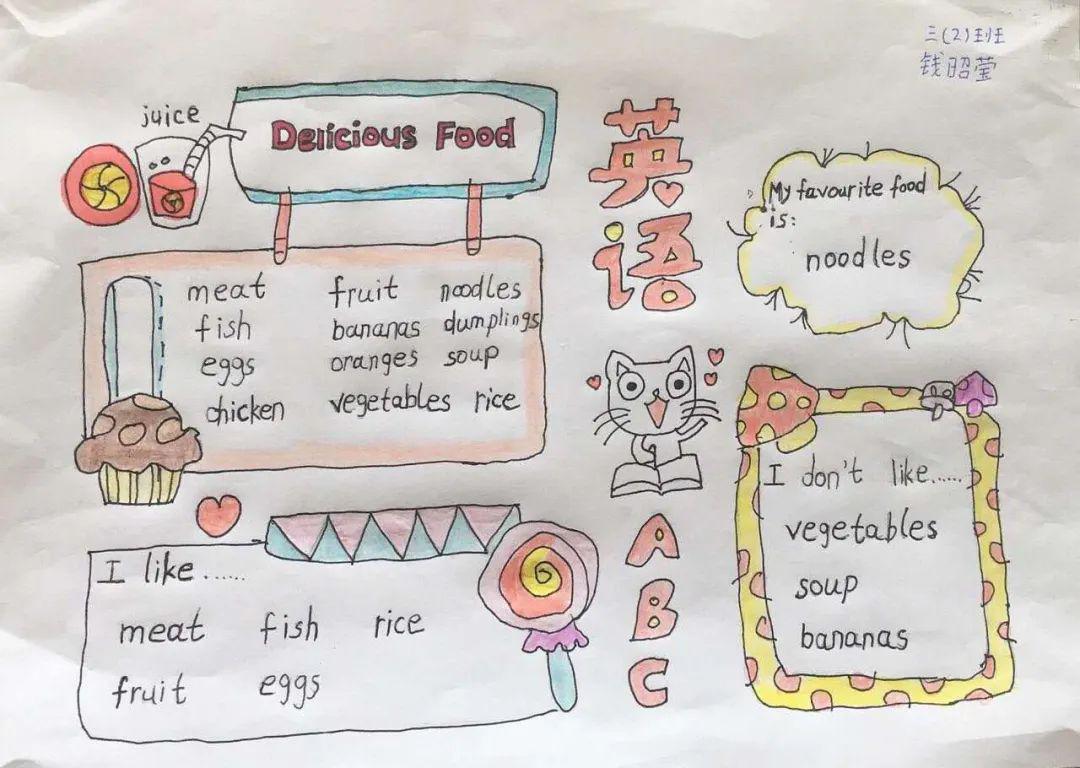 三(2)班
钱昭莹
juice
Delicious Food
meat fruit noodles
fish bananas dumplings
eggs oranges soup
chicken vegetables rice
I like......
meat fish rice
fruit eggs
英
语
A
B
C
My favourite food
is:
noodles
I don't like......
vegetables
soup
bananas